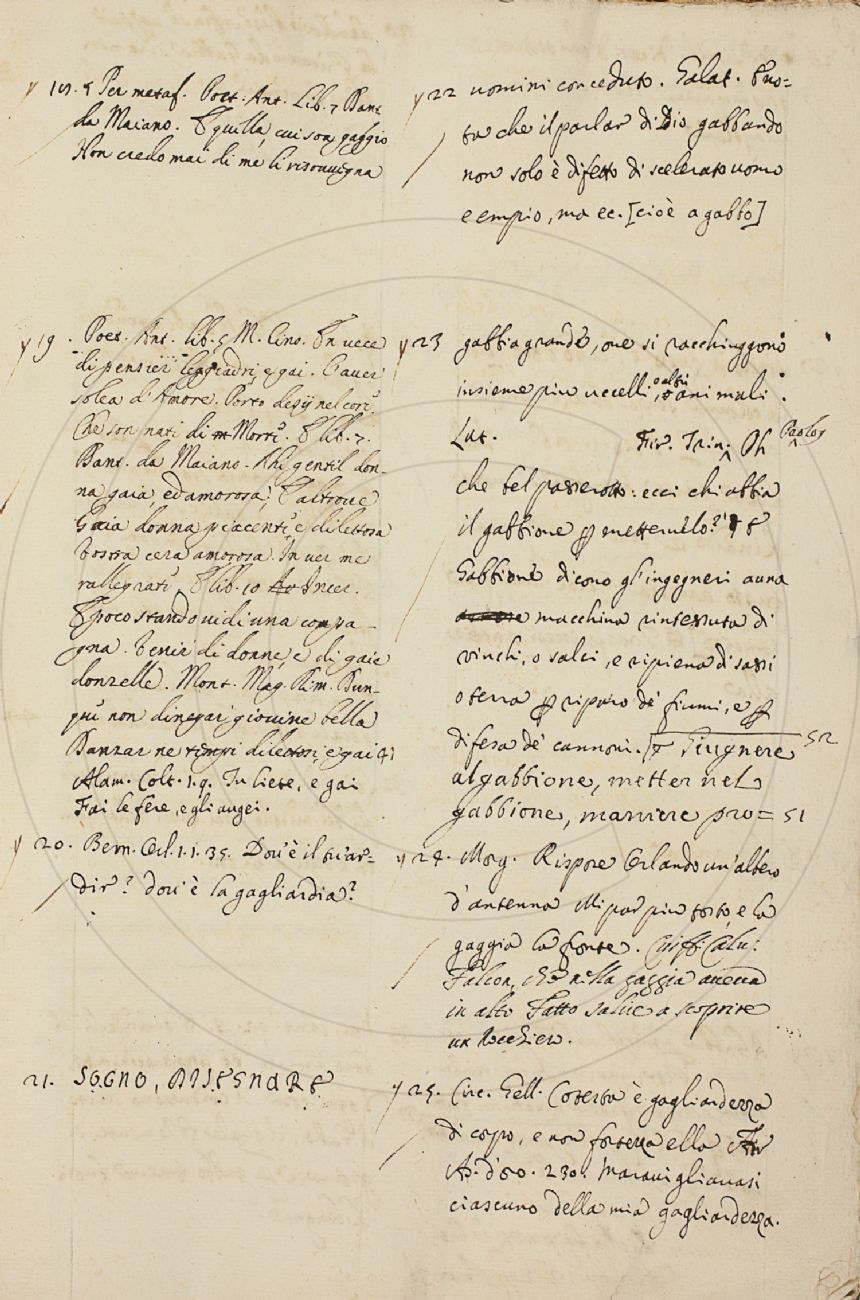 18. § Per metaf. Poet. Ant. Lib. 7 Dant.
da Maiano. E quella, cui son gaggio
Non credo mai di me li risovvegna
19. Poet. Ant. lib. 5 M. Cino. In vece
di pensier leggiadri, e gai. C'aver
solea d'Amore. Porto desij nel cor.
Che son nati di Morte. E lib. 7.
Dant. da Maiano. Ahi gentil don-
na gaia, ed amorosa. E altrove
Gaia donna piacente, e dilettosa
Vostra cera amorosa. In ver me
rallegrate. E lib. 10 Incer.
E poco stando vidi una compa-
gna. Venir di donne, e di gaie
donzelle. Mont. Mag. Rim. Dun-
que non dinegar giovine bella
Danzar ne tempi dilettosi, e gai
Alam. Colt. 1. 9. In liete, e gai
Fai le fere, e gli augei.
20. Bern. Orl. 1. 1. 35. Dov'è il tu'ar-
dir? dov'è la gagliardia?
21. SOGNO,
22 uomini conceduto. Galat. Puo-
ta che il parlar di Dio gabbando
non solo è difetto di scelerato uomo
e empio, ma ec. [cioè a gabbo]
23 gabbia grande, ove si racchiuggono
insieme più uccelli, o altri animali.
Lat. Fir. Trin.
che bel passerotto: ecci chi abbia
il gabbione p mettervelo? E
Gabbione dicono gl'ingegneri a una
macchina rintessuta di
vinchi, o salci, e ripiena di sassi
o terra p riparo de' fiumi, e p
difesa de' cannoni. Giugnere 52
al gabbione, metter nel
gabbione, maniere pro= 51
24. Morg. Rispose Orlando un'albero
d'antenna Mi par più tosto, e la
gaggia la fonte. Ciriff. Calv.
Falcon, che nella gaggia aveva
in alto Fatto salire a scoprire
un Nocchiero.
25. Circ. Gell. Cotesta è gagliardezza
di corpo, e non fortezza ella
As. d'oro. 230. Maravigliavasi
ciascuno della mia gagliardezza.